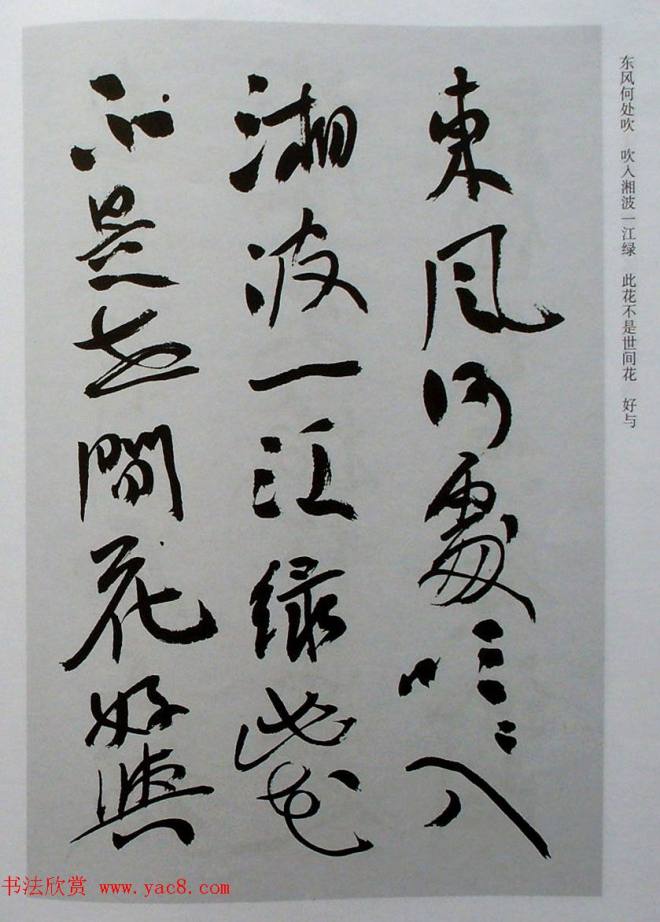 東風何處吹〻入
湘波一江綠此花
不是世間花好與
东风何处吹 吹入湘波一江绿 此花不是世间花 好与
书法欣赏 www.yac8.com